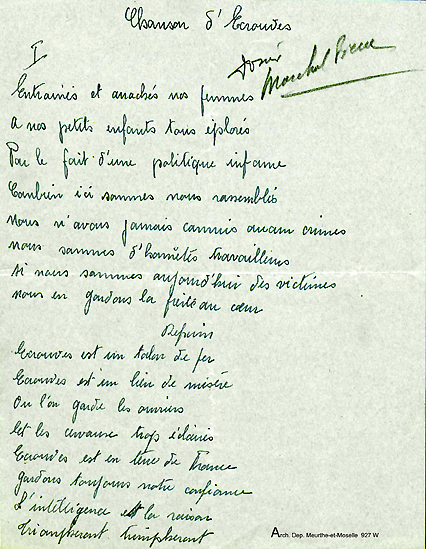 Chanson d'Ecrouves
I
Marchal Pierre
Entrainés et arrachés nos femmes
A nos petits enfants tous éplorés
Par le fait d'une politique infame
Combien ici sommes nous rassemblés
Nous n'avons jamais commis aucun crimes
nous sommes d'honnêtes travailleurs
si nous sommes aujourd'hui des victimes
nous en gardons la fierté au cœur
Refrain
Ecrouves est un talon de fer
Ecrouves est un lieu de misère
Ou l'on garde les ouvriers
Et les cerveaux trop éclairés
Ecrouves est en terre de France
gardons toujours notre confiance
L'intelligence et la raison
Triompheront triompheront
Arch. Dep. Meurthe-et-Moselle 927 W